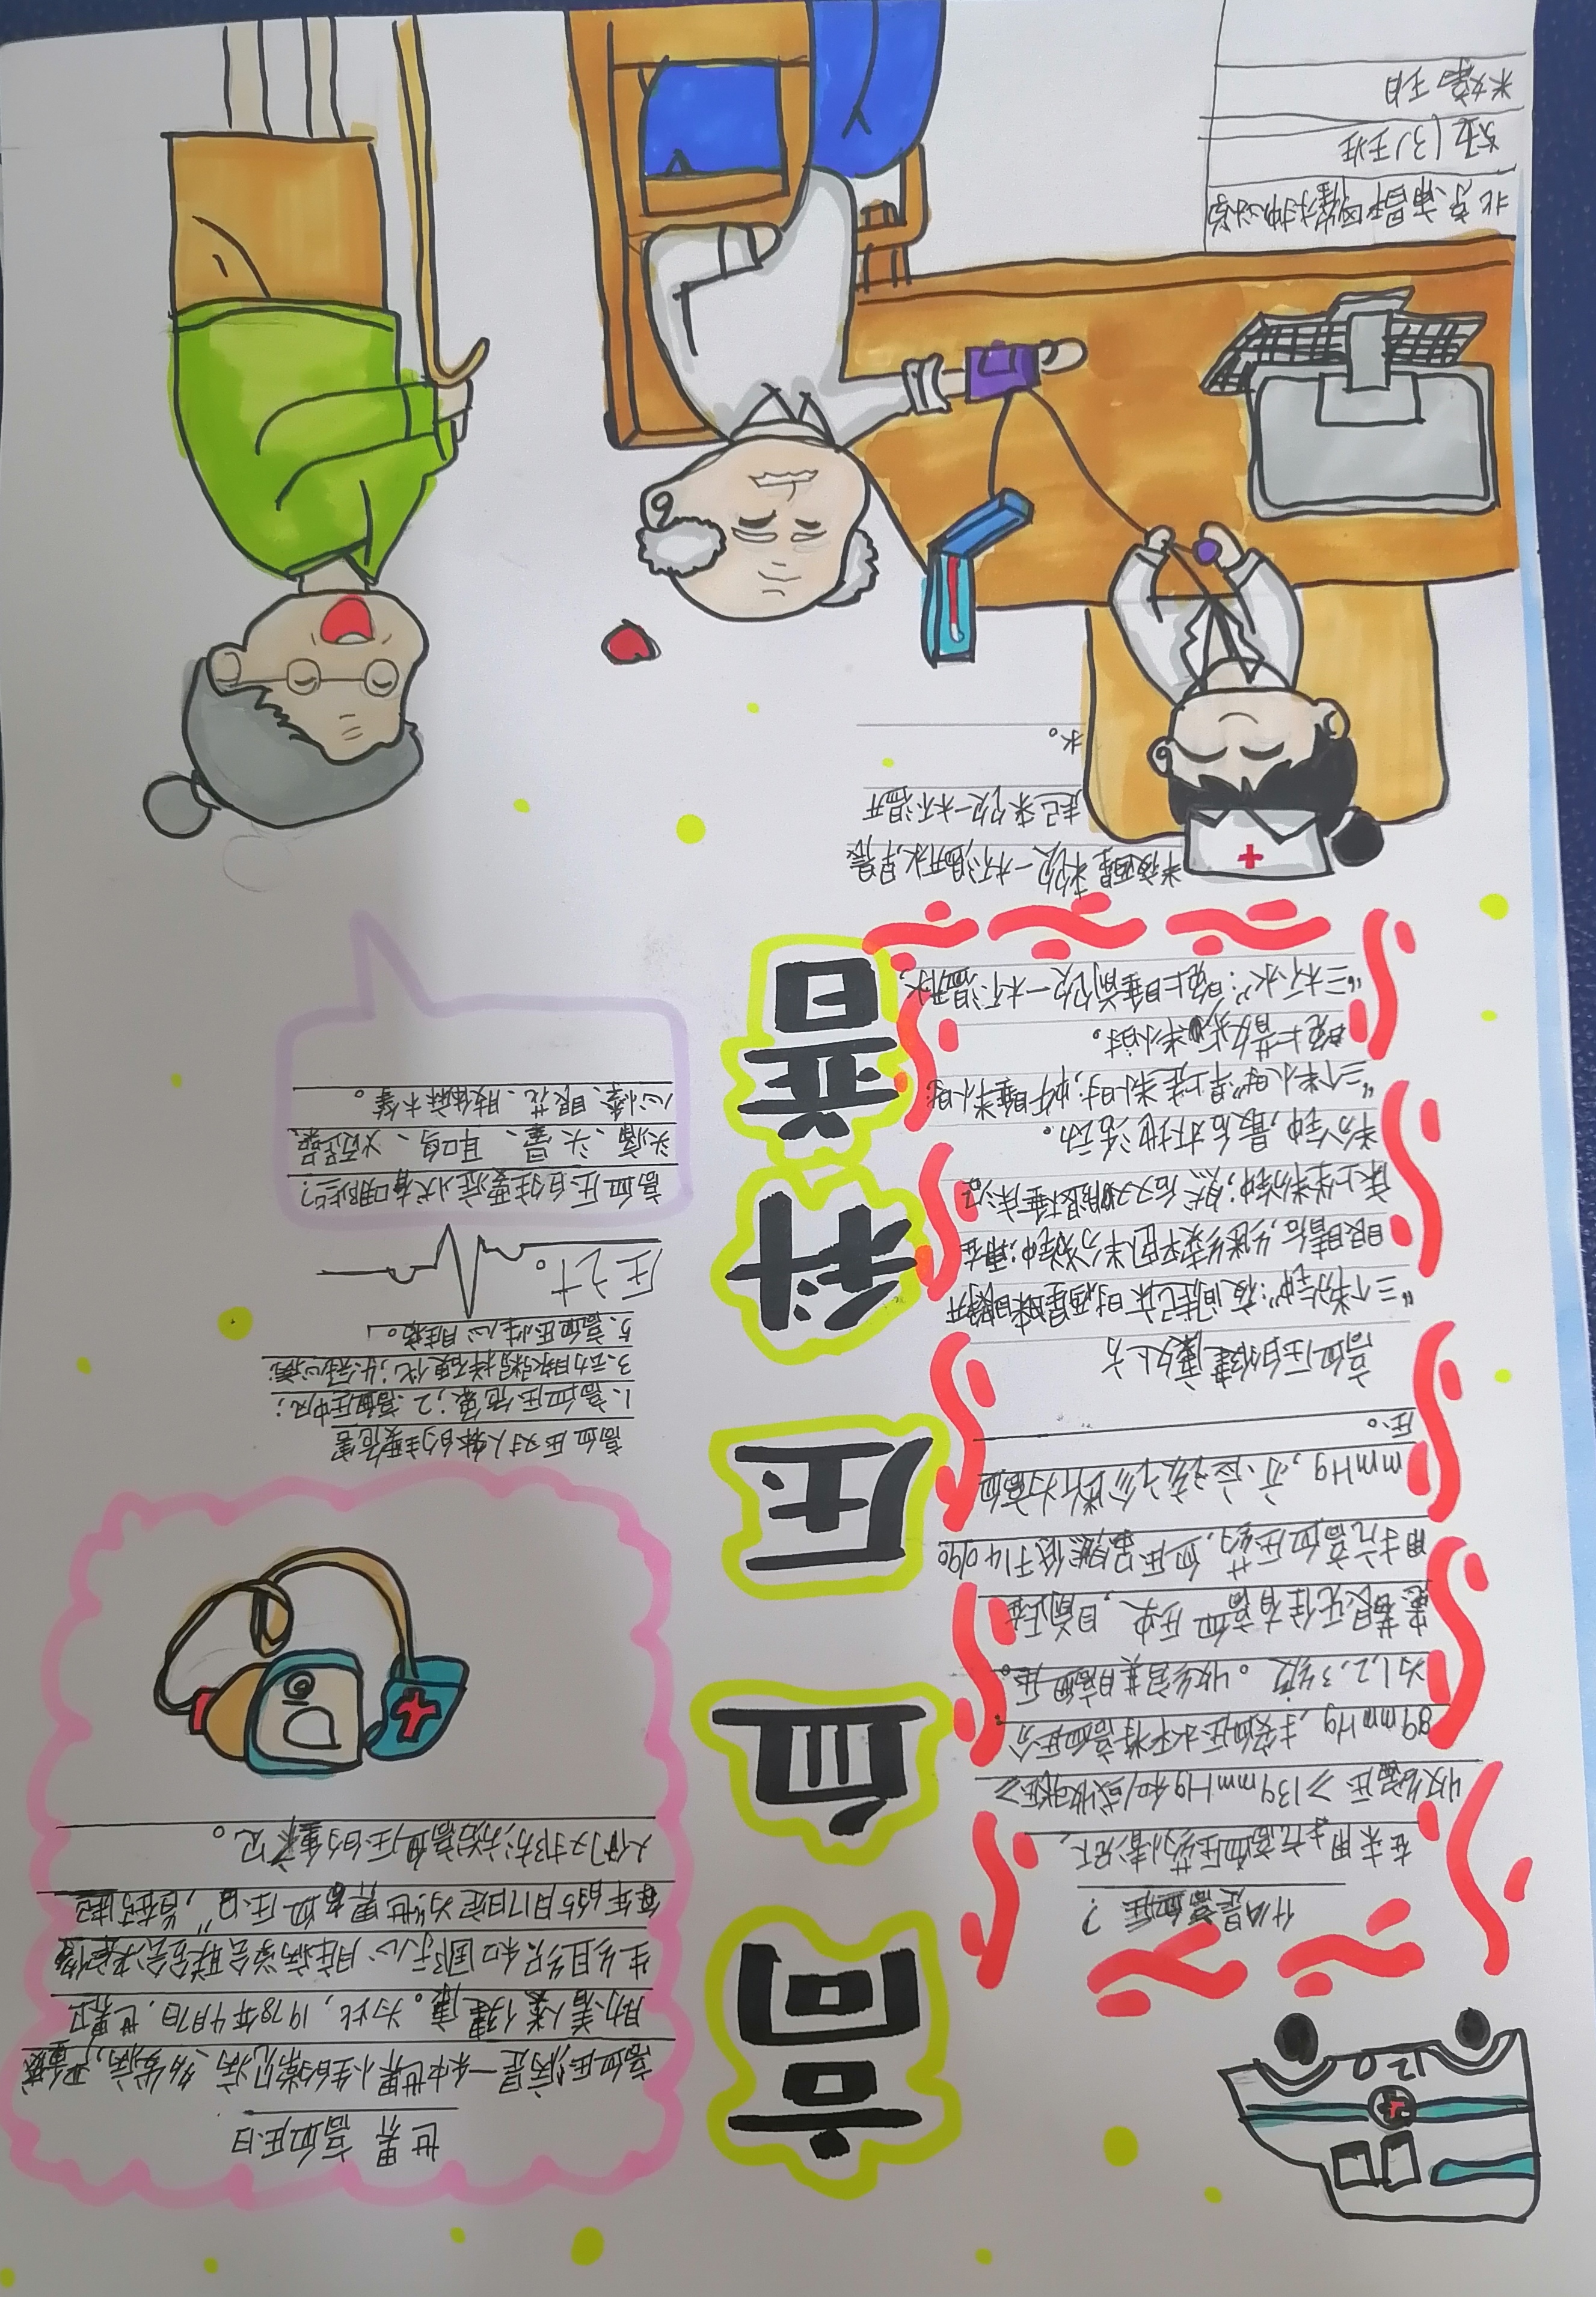 高血压科普
120
什么是高血压?
在未用抗高血压药情况下,
收缩压≥139mmHg和/或舒张压≥
89mmHg,按血压水平将高血压分
为1,2,3级。收缩高其目高血压。
患者既往有高血压史,目前正在
用抗高血压药,血压虽然低于140/90
mmHg,亦应该诊断为高血
压。
高血压自修健康处方
“三个半分钟”:夜间起床时,醒来睁开
眼睛后,继续平卧半分钟;再在
床上坐半分钟;然后双腿下垂床沿
半分钟,最后下地活动。
“三个半小时”早上走半小时,中午睡半小时
晚上散步半小时。
“三杯水”:晚上睡前饮一杯温开水,
半夜醒来饮一杯温开水早晨
起来饮一杯温开
水。
世界高血压日
高血压病是一种世界性的常见病、多发病,严重威
胁着人类健康。为此,1978年4月7日,世界卫
生组织和国际心脏病学会联合会决定将
每年的5月17日定为“世界高血压日”,旨在引起
人们对防治高血压的重视。
高血压对人体的主要危害
1、高血压危象;2、高血压中风;
3、动脉粥样硬化;4、冠心病;
5、高血压性心脏病。
压之十。
高血压的主要症状有哪些?
头痛、头晕、耳鸣、
心悸、眼花、肢体麻木等。